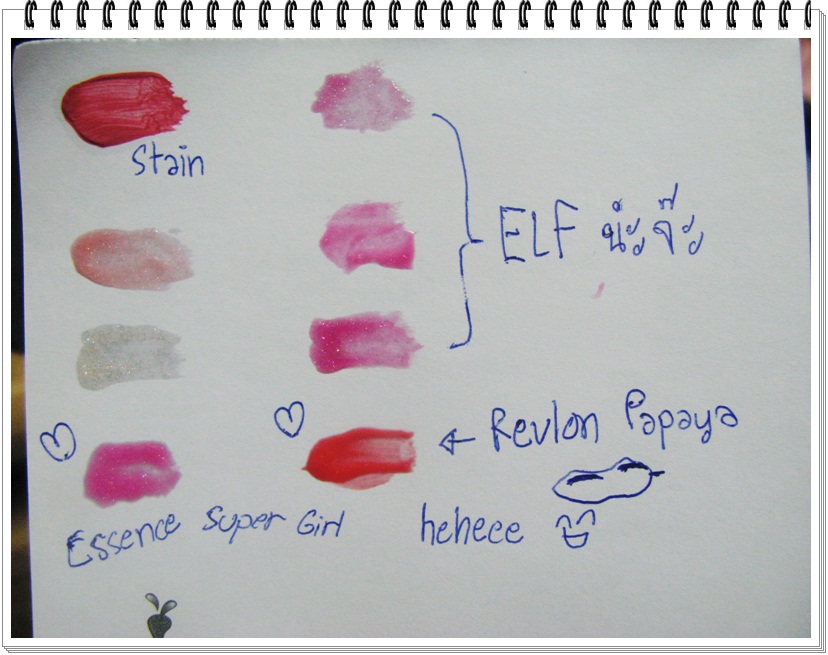 Stain
ELF น่ะจ๊ะ
Revlon Papaya
Essence Super Girl
heheee